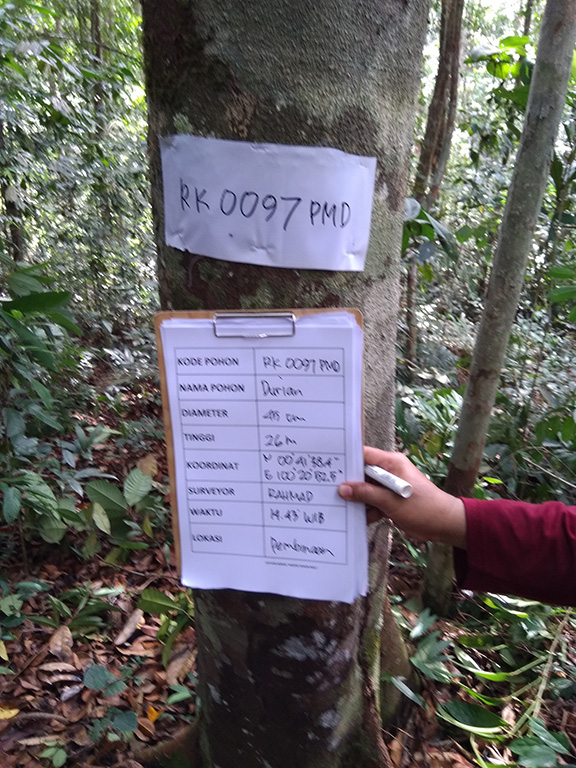 RK 0097 PMD
KODE POHON RK 0097 PMD
NAMA POHON Durian
DIAMETER 45 cm
TINGGI 26 m
KOORDINAT N 00°41'38.4"
E 100°20'52.5"
SURVEYOR RAHMAD
WAKTU 14.43 WIB
LOKASI Pembinaan